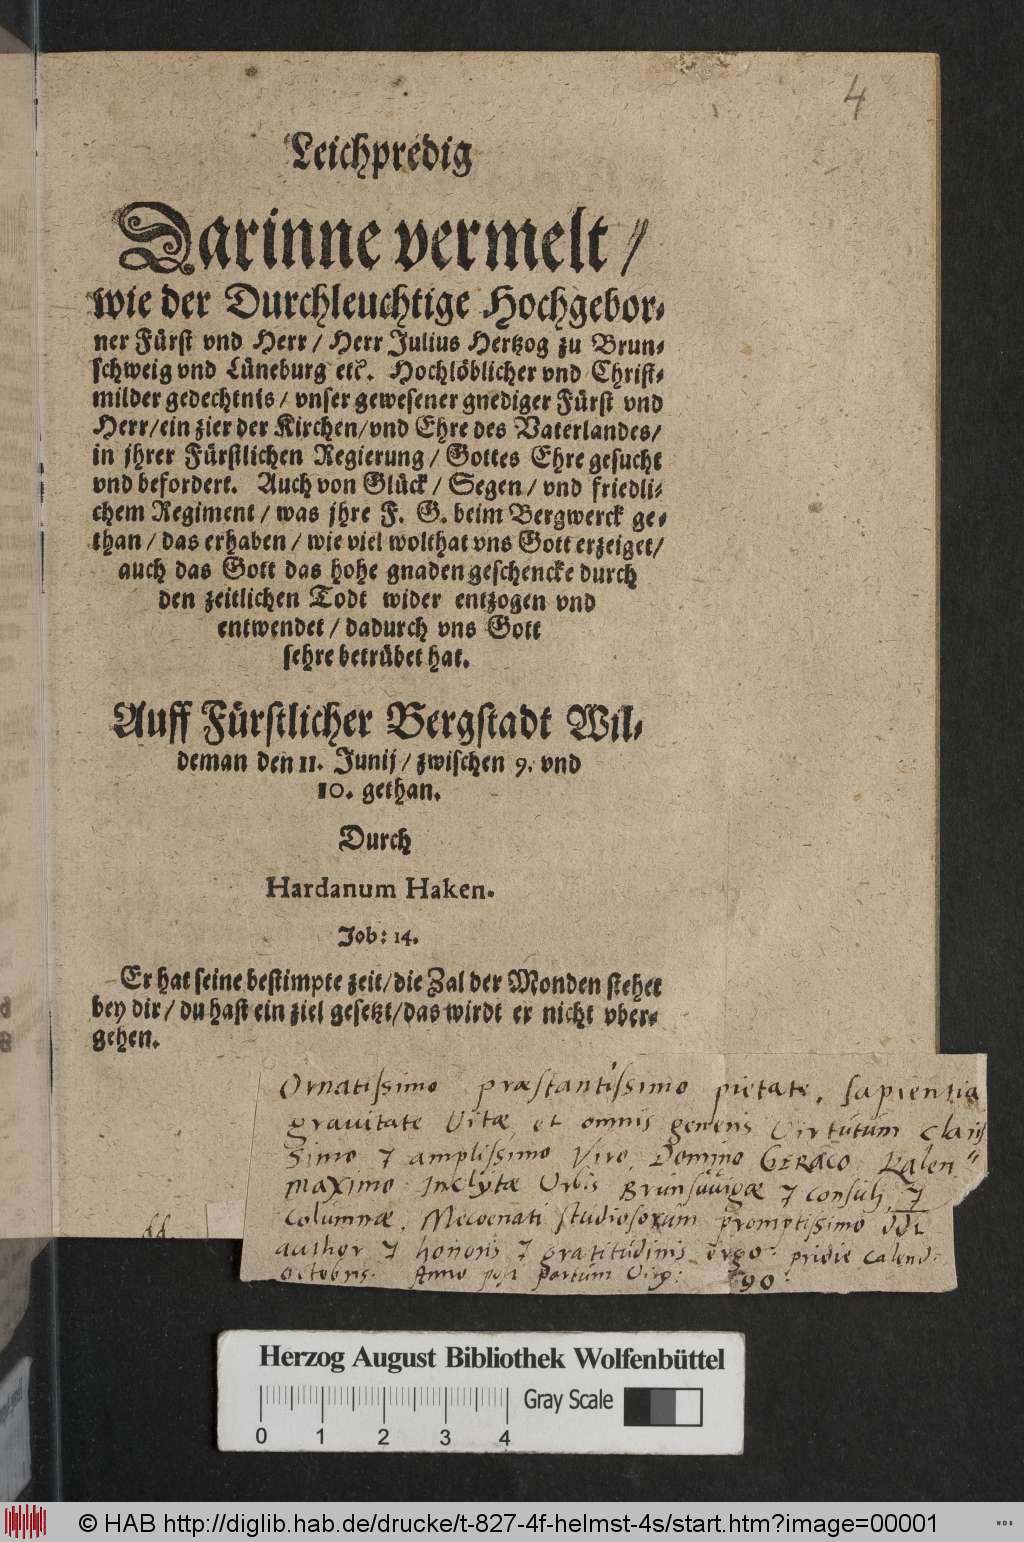 4
Leichpredig
Darinne vermelt /
wie der Durchleuchtige Hochgebor⸗
ner Fürst vnd Herr / Herr Julius Hertzog zu Brun⸗
schweig vnd Lüneburg etc. Hochlöblicher vnd Christ⸗
milder gedechtnis / vnser gewesener gnediger Fürst vnd
Herr/ein zier der Kirchen/vnd Ehre des Vaterlandes/
in jhrer Fürstlichen Regierung / Gottes Ehre gesucht
vnd befordert. Auch von Glück / Segen / vnd friedli⸗
chem Regiment / was jhre F. G. beim Bergwerck ge⸗
than / das erhaben / wie viel wolthat vns Gott erzeiget/
auch das Gott das hohe gnaden geschencke durch
den zeitlichen Todt wider entzogen vnd
entwendet / dadurch vns Gott
sehre betrübet hat.
Auff Fürstlicher Bergstadt Wil⸗
deman den 11. Junij / zwischen 9. vnd
10. gethan.
Durch
Hardanum Haken.
Job: 14.
Er hat seine bestimpte zeit/die Zal der Monden stehet
bey dir / du hast ein ziel gesetzt/das wirdt er nicht vber⸗
gehen.
Ornatissimo præstantissimo pietate, sapientia
grauitate Vitæ et omnis generis Virtutum claris
simo & amplissimo Viro, Domino GERACO Kalen"
maximo Inclytæ Urbis Brunsuuigæ & consuli &
Columnæ, Mecoenati studiosorum promptissimo DD
author & honoris & gratitudinis ergo: pridie Calend:
Octobris. Anno post partum Virg: 90:
Herzog August Bibliothek Wolfenbüttel
Gray Scale
0 1 2 3 4
© HAB http://diglib.hab.de/drucke/t-827-4f-helmst-4s/start.htm?image=00001
WDB